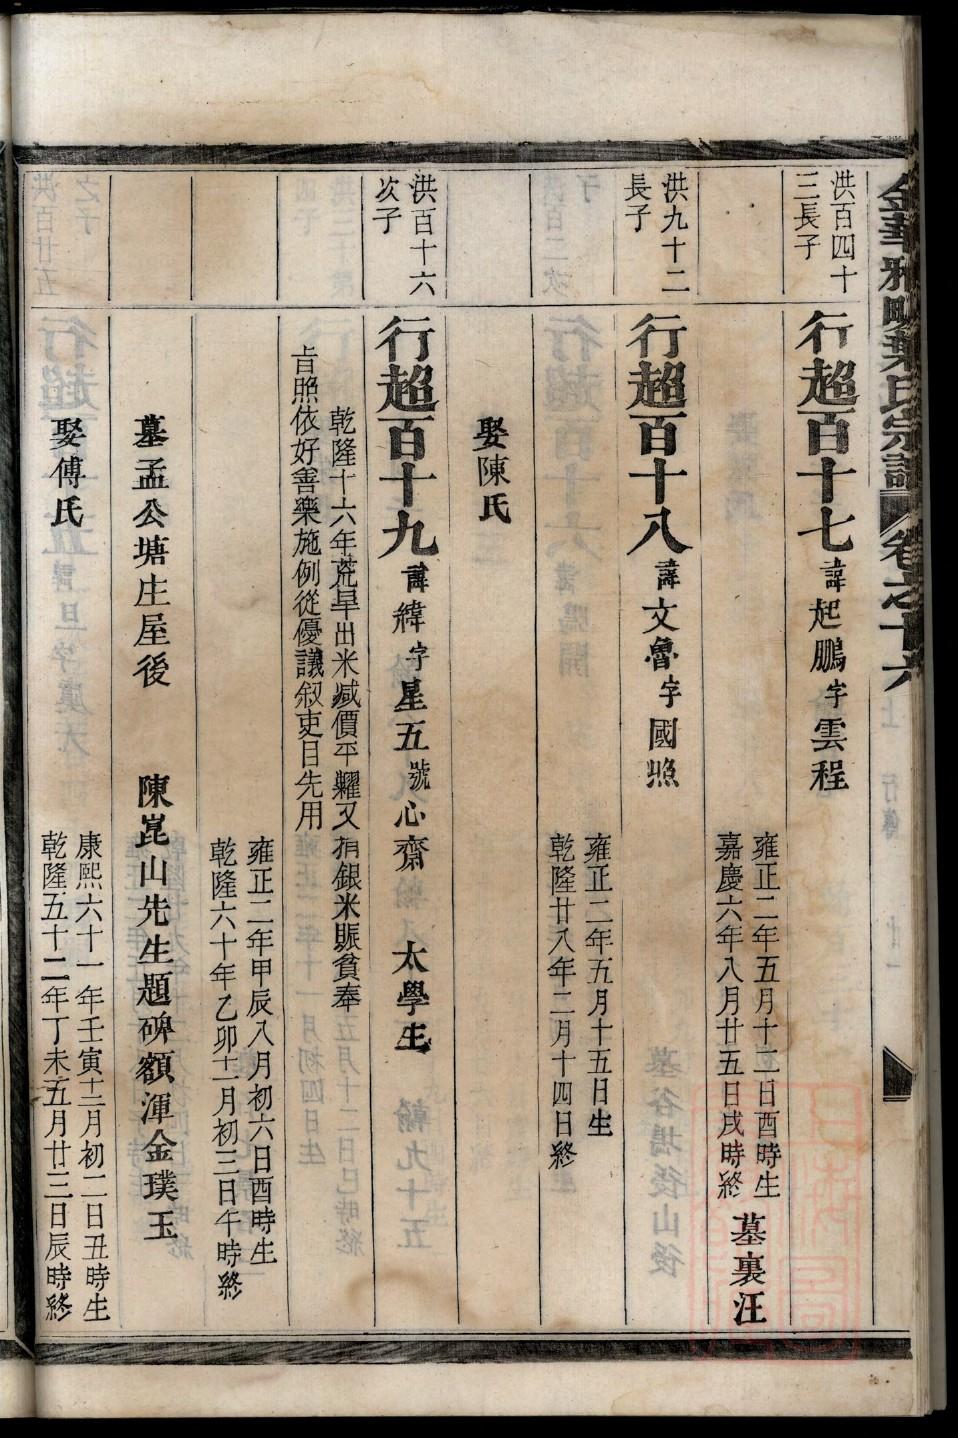 金華雅畈葉氏宗譜
卷之十六
上
行傳
洪百四十
三長子
行超百十七
諱起鵬字雲程
雍正二年五月十二日酉時生
嘉慶六年八月廿五日戌時終
墓裏汪
洪九十二
長子
行超百十八
諱文魯字國照
雍正二年五月十五日生
乾隆廿八年二月十四日終
娶陳氏
洪百十六
次子
行超百十九
諱緯字星五號心齋 太學生
乾隆十六年荒旱出米减價平糶又捐銀米賑貧奉
㫖照依好善樂施例從優議叙吏目先用
雍正二年甲辰八月初六日酉時生
乾隆六十年乙卯十一月初三日午時終
墓孟公塘庄屋後 陳崑山先生題碑額渾金璞玉
娶傅氏
康熙六十一年壬寅十二月初二日丑時生
乾隆五十二年丁未五月廿三日辰時終